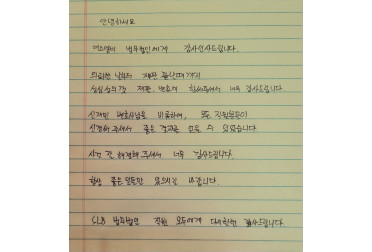 안녕하세요
법무법인에게 감사인사드립니다.
의뢰한 날부터 재판 끝날때까지
성심성의껏 재판, 변호에 힘써주셔서 너무 감사드립니다
변호사님을 비롯하여, 직원분들이
신경써주셔서 좋은 결과를 얻을 수 있었습니다.
사건 잘 해결해주셔서 너무 감사드립니다.
항상 좋은 일들만 있으시길 바랍니다.
법무법인 직원 모두에게 다시한번 감사드립니다.